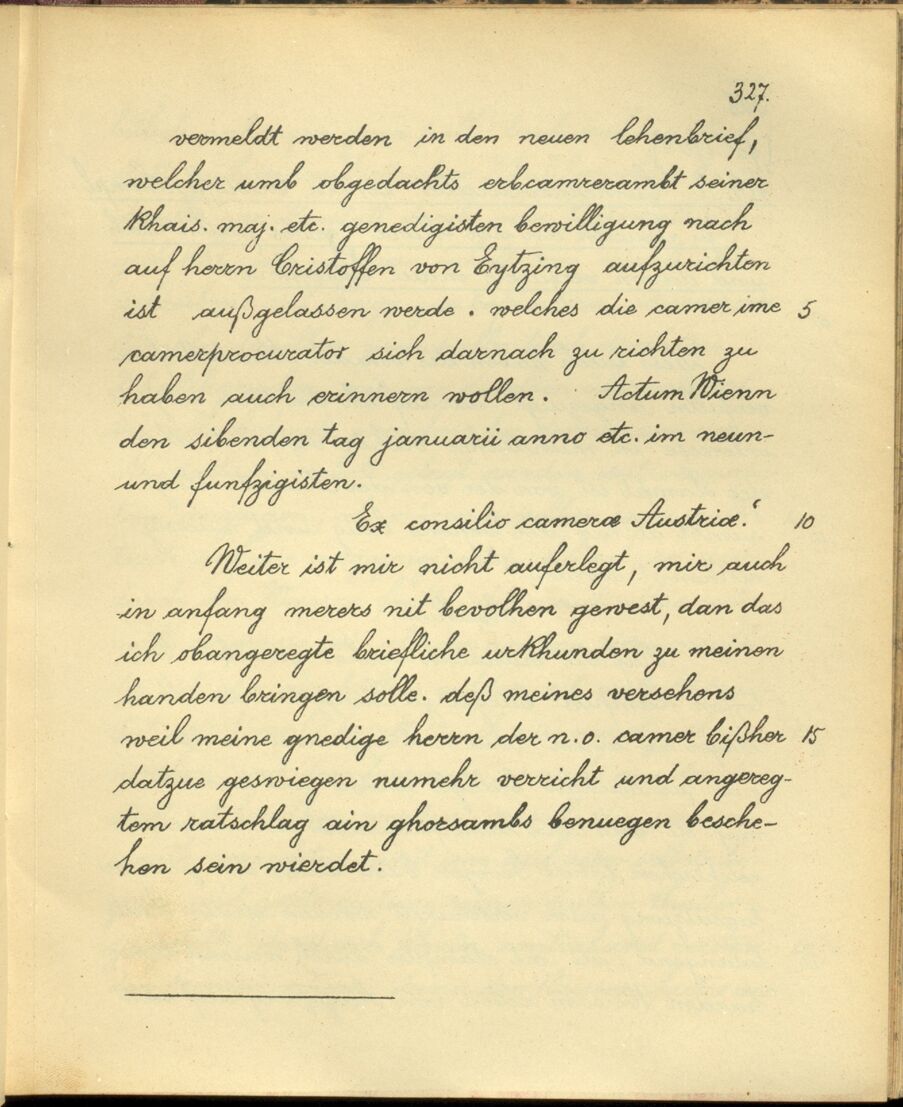 327.
vermeldt werden in den neuen lehenbrief,
welcher umb obgedachts erbcamrerambt seiner
khais. maj. etc. genedigisten bewilligung nach
auf herrn Cristoffen von Eytzing aufzurichten
ist außgelassen werde. welches die camer ime 5
camerprocurator sich darnach zu richten zu
haben auch erinnern wollen. Actum Wienn
den sibenden tag januarii anno etc. im neun-
und funfzigisten.
Ex consilio cameræ Austriæ.‘ 10
Weiter ist mir nicht auferlegt, mir auch
in anfang merers nit bevolhen gewest, dan das
ich obangeregte briefliche urkhunden zu meinen
handen bringen solle. deß meines versehens
weil meine gnedige herrn der n.o. camer bißher 15
datzue geswiegen numehr verricht und angereg-
tem ratschlag ain ghorsambs benuegen besche-
hen sein wierdet.